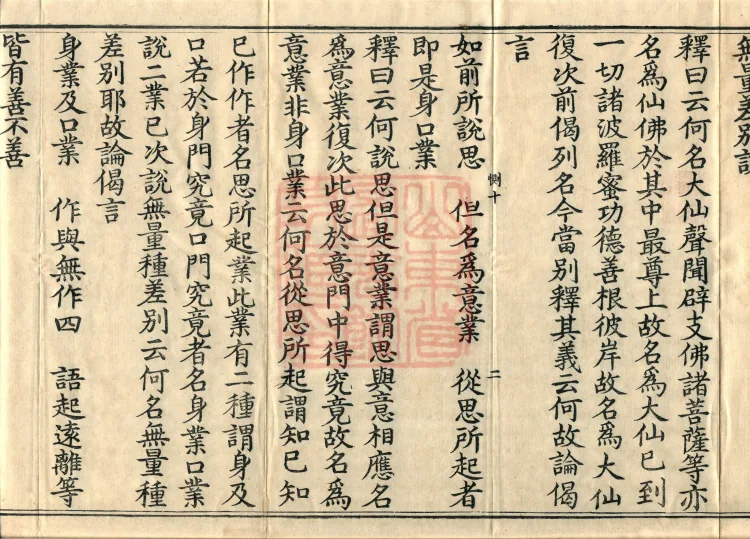 無量差別說
釋曰云何名大仙聲聞辟支佛諸菩薩等亦
名爲仙佛於其中最尊上故名爲大仙已到
一切諸波羅蜜功德善根彼岸故名爲大仙
復次前偈列名今當別釋其義云何故論偈
言
如前所說思　但名爲意業　從思所起者
惻十　二
即是身口業
釋曰云何說思但是意業謂思與意相應名
爲意業復次此思於意門中得究竟故名爲
意業非身口業云何名從思所起謂知已知
已作作者名思所起業此業有二種謂身及
口若於身門究竟口門究竟者名身業口業
說二業已次說無量種差別云何名無量種
差別耶故論偈言
身業及口業　作與無作四　語起遠離等
皆有善不善